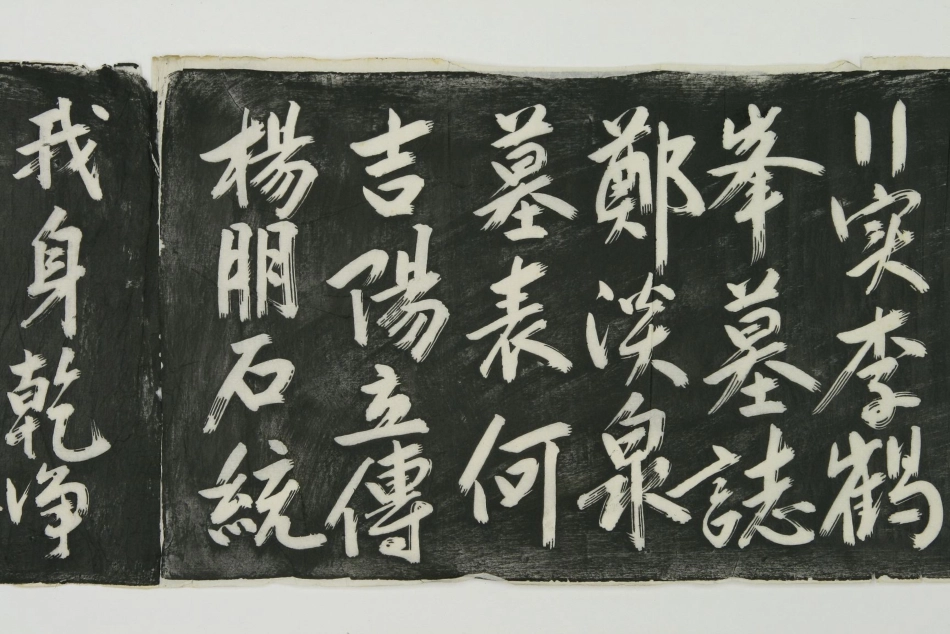 〃实李鶴
峯墓誌
鄭淡泉
墓表何
吉陽立傳
楊朋石統
我身乾净